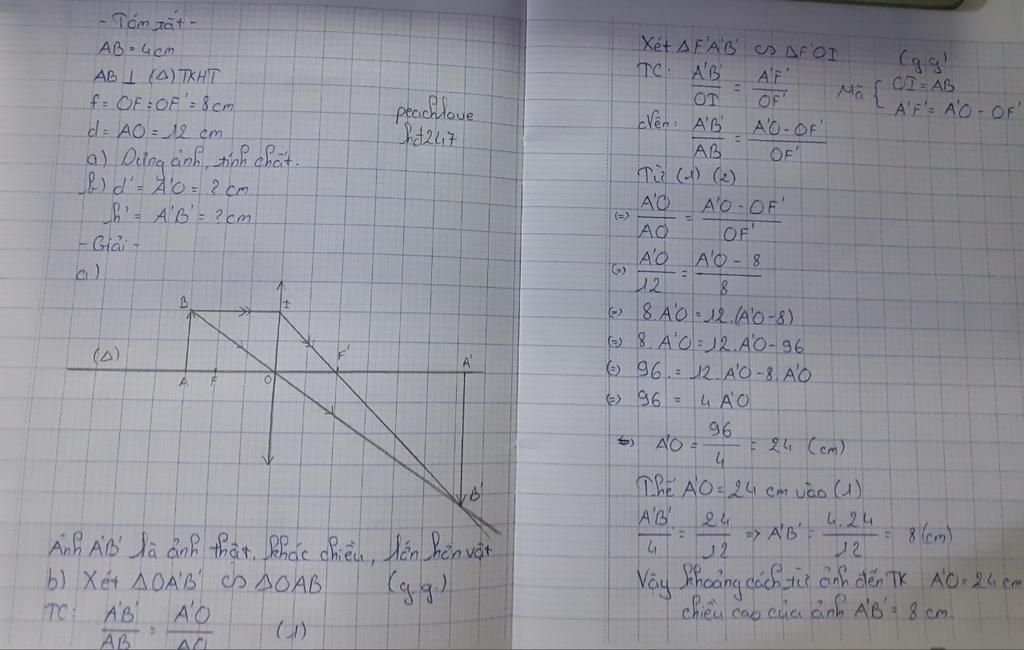 - Tóm tắt -
AB = 4cm
AB ⊥ (Δ) TKHT
f = OF = OF' = 8cm
d = AO = 12 cm
a) Dựng ảnh, tính chất.
b) d' = A'O = ? cm
h' = A'B' = ? cm
peachlove
hd247
- Giải -
a)
B
I
(Δ)
A
F
O
F'
A'
B'
Ảnh A'B' là ảnh thật, khác chiều, lớn hơn vật
b) Xét ΔOA'B' ∽ ΔOAB (g.g)
TC: A'B'/AB = A'O/AO (1)
Xét ΔF'A'B' ∽ ΔF'OI (g.g)
TC: A'B'/OI = A'F'/OF' Mà { OI = AB
A'F' = A'O - OF'
Nên: A'B'/AB = A'O - OF'/OF'
Từ (1) (2)
(=) A'O/AO = A'O - OF'/OF'
(=) A'O/12 = A'O - 8/8
(=) 8.A'O = 12.(A'O - 8)
(=) 8.A'O = 12.A'O - 96
(=) 96 = 12.A'O - 8.A'O
(=) 96 = 4 A'O
(=) A'O = 96/4 = 24 (cm)
Thế A'O = 24 cm vào (1)
A'B'/4 = 24/12 => A'B' = 4.24/12 = 8 (cm)
Vậy khoảng cách từ ảnh đến TK A'O = 24 cm
chiều cao của ảnh A'B' = 8 cm.